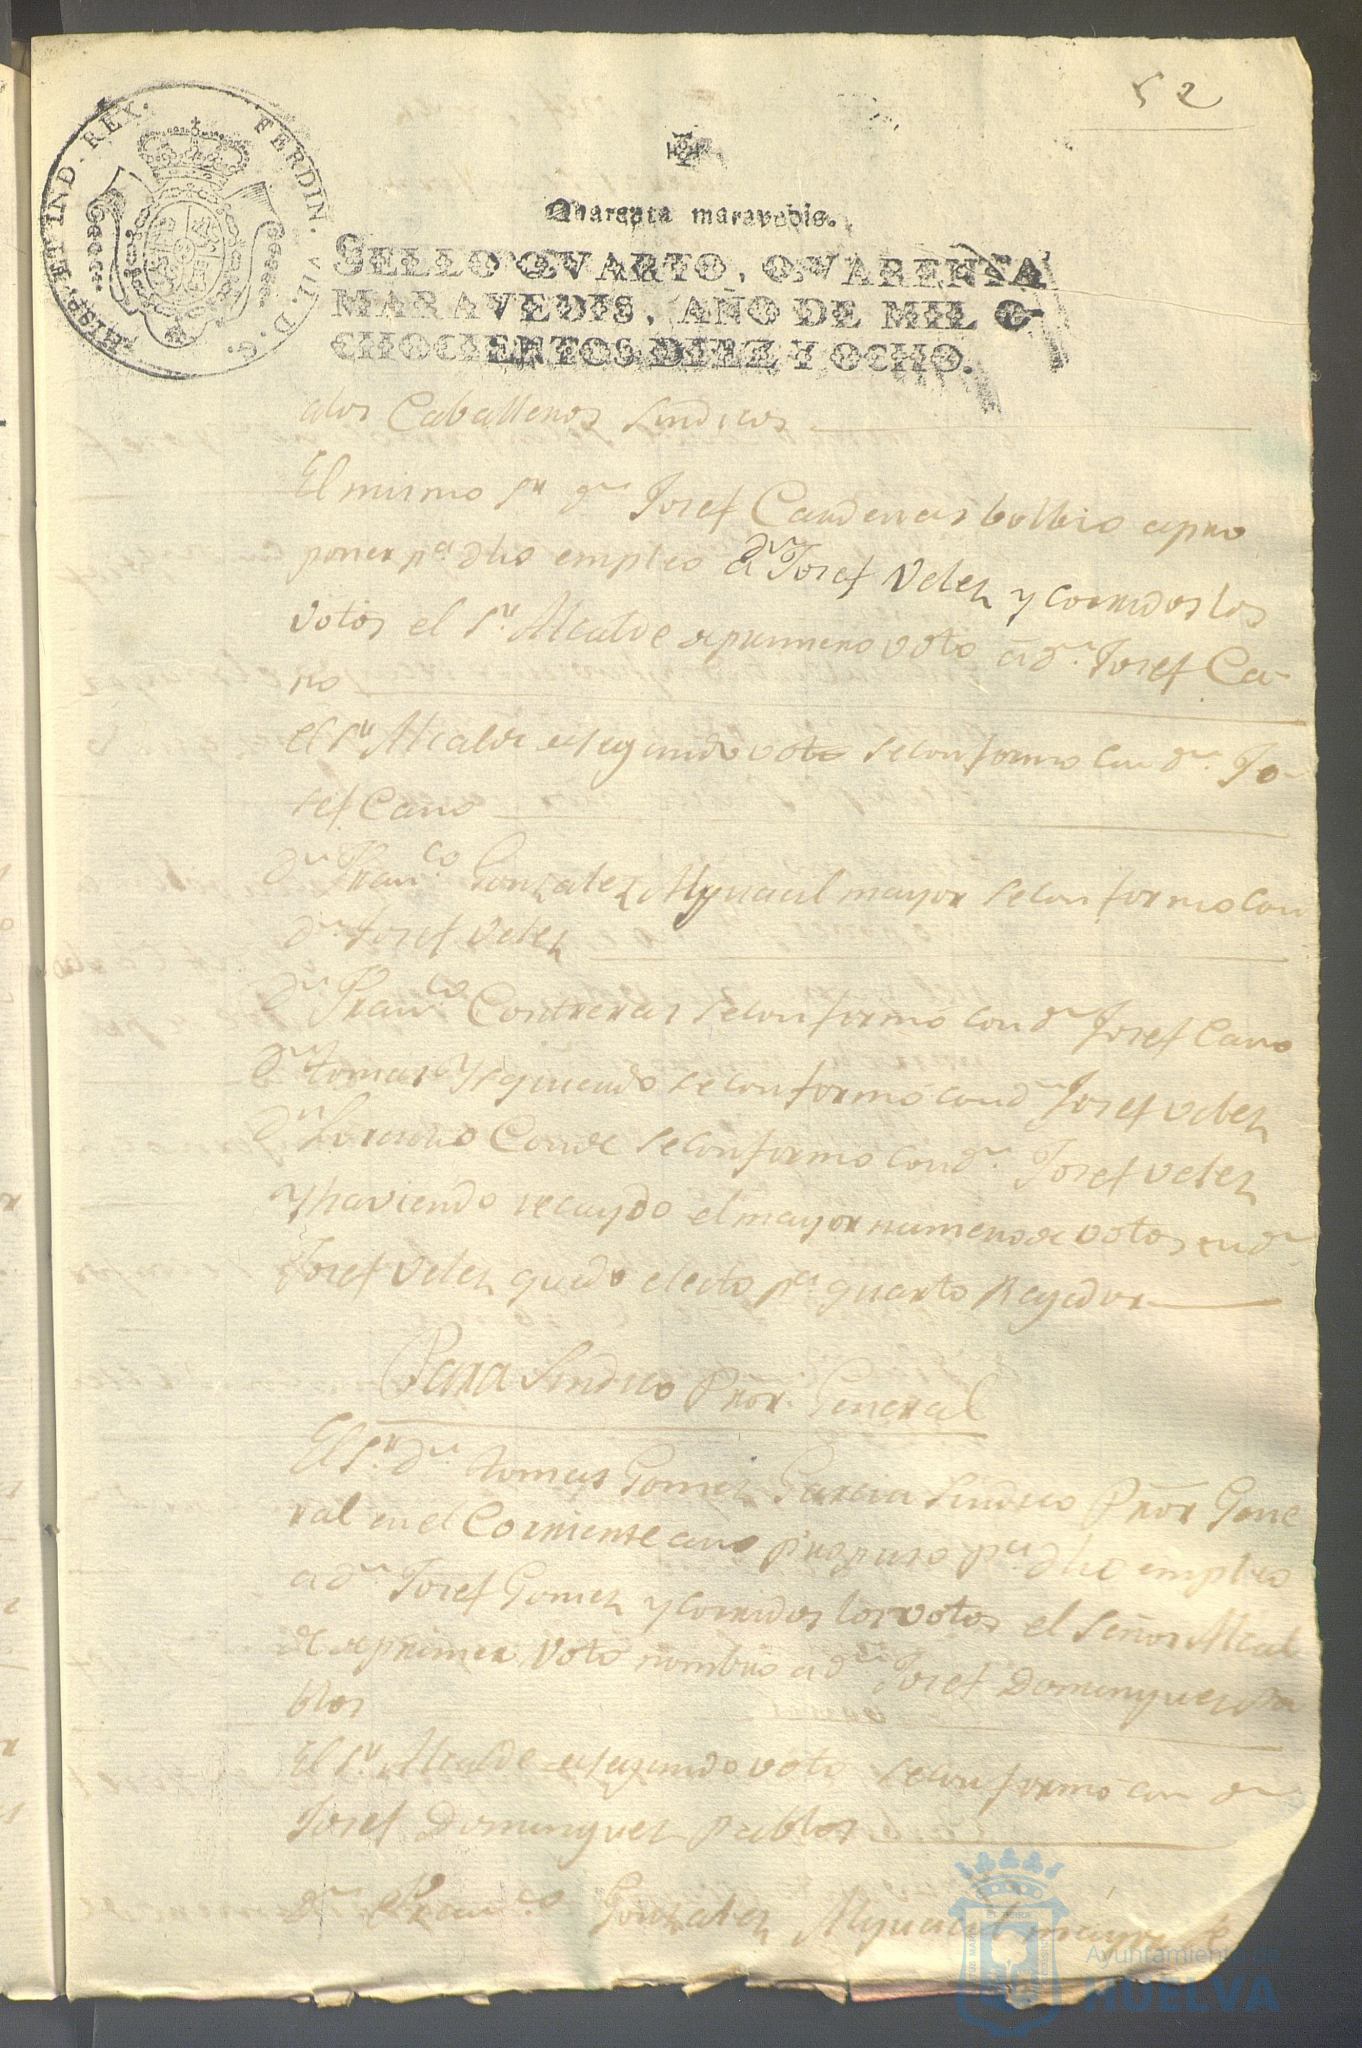 52
HISP. ET IND. REX. FERDIN. VII. D. G.
Quarenta maravedis.
SELLO QVARTO, QVARENTA
MARAVEDIS, AÑO DE MIL O-
CHOCIENTOS DIEZ Y OCHO.
alos Caballeros Sindicos
El mismo Sr. dn. Josef Cardenas bolbio apro
poner pa. dho empleo a dn. Josef Velez y corridos los
votos el Sr. Alcalde de primero voto a dn. Josef Ca-
no
el Sr. Alcalde de segundo voto se conformo con dn. Jo-
sef Cano
dn. Franco. Gonzalez Alguacil mayor se conformo con
dn. Josef Velez
dn. Franco. Contreras se conformo con dn. Josef Cano
dn. tomas Ysquierdo se conformó con dn. Josef Velez
dn. Lorenzo Conde se conformo con dn. Josef Velez
y haviendo recaydo el mayor numero de votos en dn.
Josef Velez quedo electo pa. quarto Regidor
Para Sindico Pror. General
El Sr. dn. tomas Gomez Garcia Sindico Pror Gene
ral en el Corriente año propuso pa. dho empleo
a dn. Josef Gomez y corridos los votos el Señor Alcal
de de primer voto nombró a dn. Josef Dominguez Pa
blos
El Sr. Alcalde de segundo voto se conformó con dn.
Josef Dominguez Pablos
dn. Franco. Gonzalez Alguacil mayor
Ayuntamiento de
HUELVA